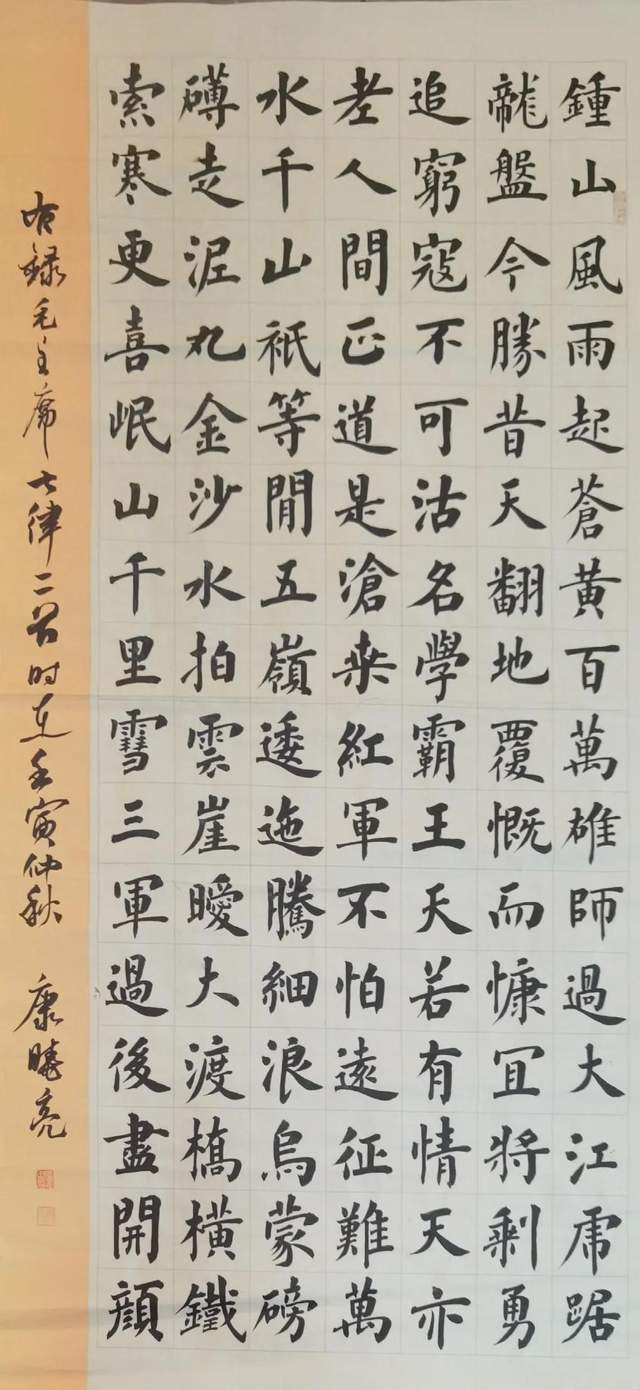 鍾山風雨起蒼黃百萬雄師過大江虎踞
龍盤今勝昔天翻地覆慨而慷宜將剩勇
追窮寇不可沽名學霸王天若有情天亦
老人間正道是滄桒紅軍不怕遠征難萬
水千山祇等閒五嶺逶迤騰細浪烏蒙磅
礴走泥丸金沙水拍雲崖曖大渡橋橫鐵
索寒更喜岷山千里雪三軍過後盡開顏
右錄毛主席七律二首时在壬寅仲秋 康曉亮